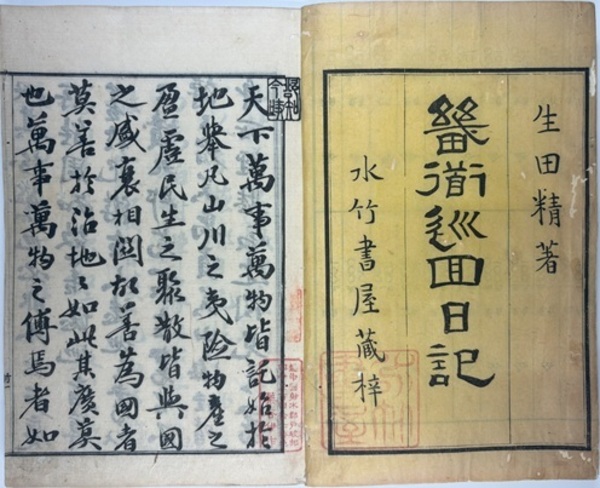 生田精著
畿衜巡回日記
水竹書屋藏梓
天下萬事萬物皆託始於
地舉凡山川之夷险物產之
盈虛民生之聚散皆與國
之盛衰相関故善為國者
莫善於治地々如此其廣莫
也萬事萬物之傅焉者如